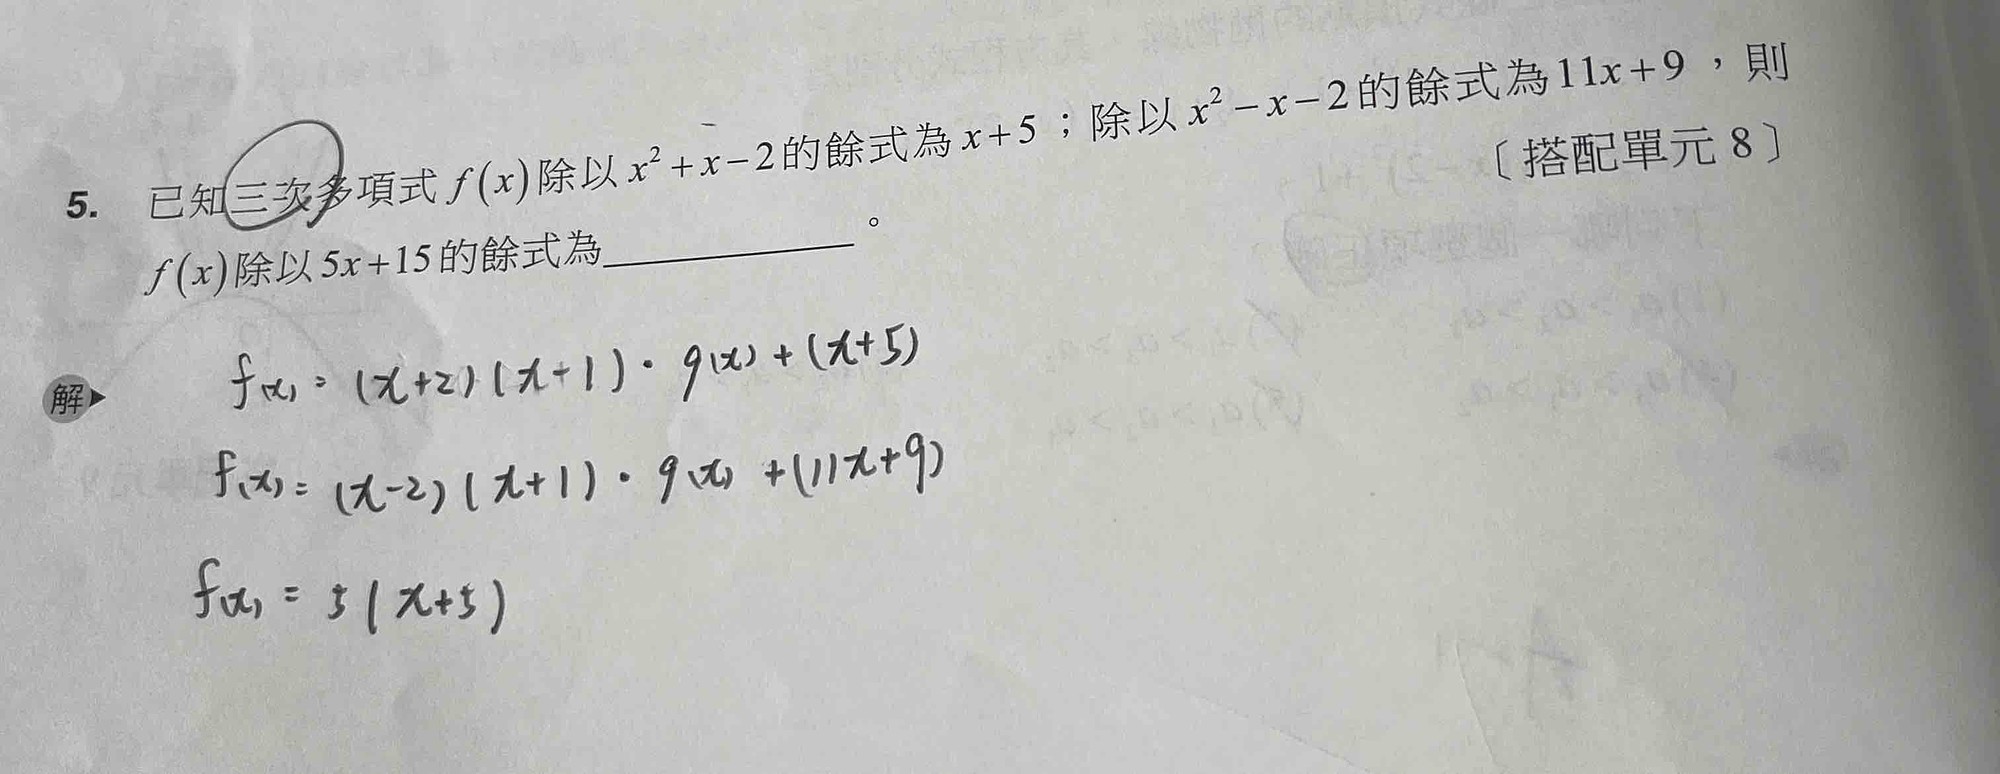 5. 已知三次多項式 f(x)除以 x²+x−2的餘式為 x+5；除以 x²−x−2的餘式為11x+9，則
f(x)除以5x+15的餘式為＿＿＿＿＿＿。 〔搭配單元 8〕
解 f(x) = (x+2)(x+1)·q(x)+(x+5)
f(x) = (x-2)(x+1)·q(x)+(11x+9)
f(x) = 5(x+5)